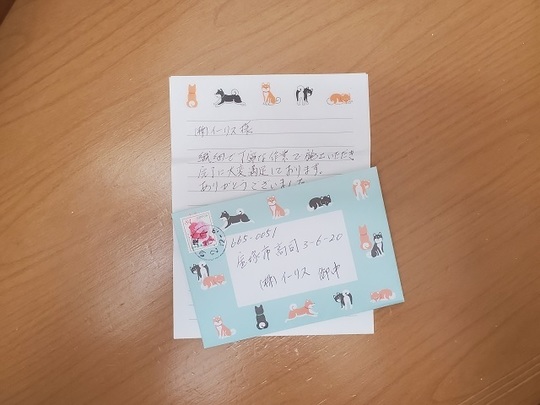 (株)イーリス様
繊細で丁寧な作業で施工いただき
仕上に大変満足しております。
ありがとうございました
665-0051
宝塚市高司3-6-20
(株)イーリス 御中